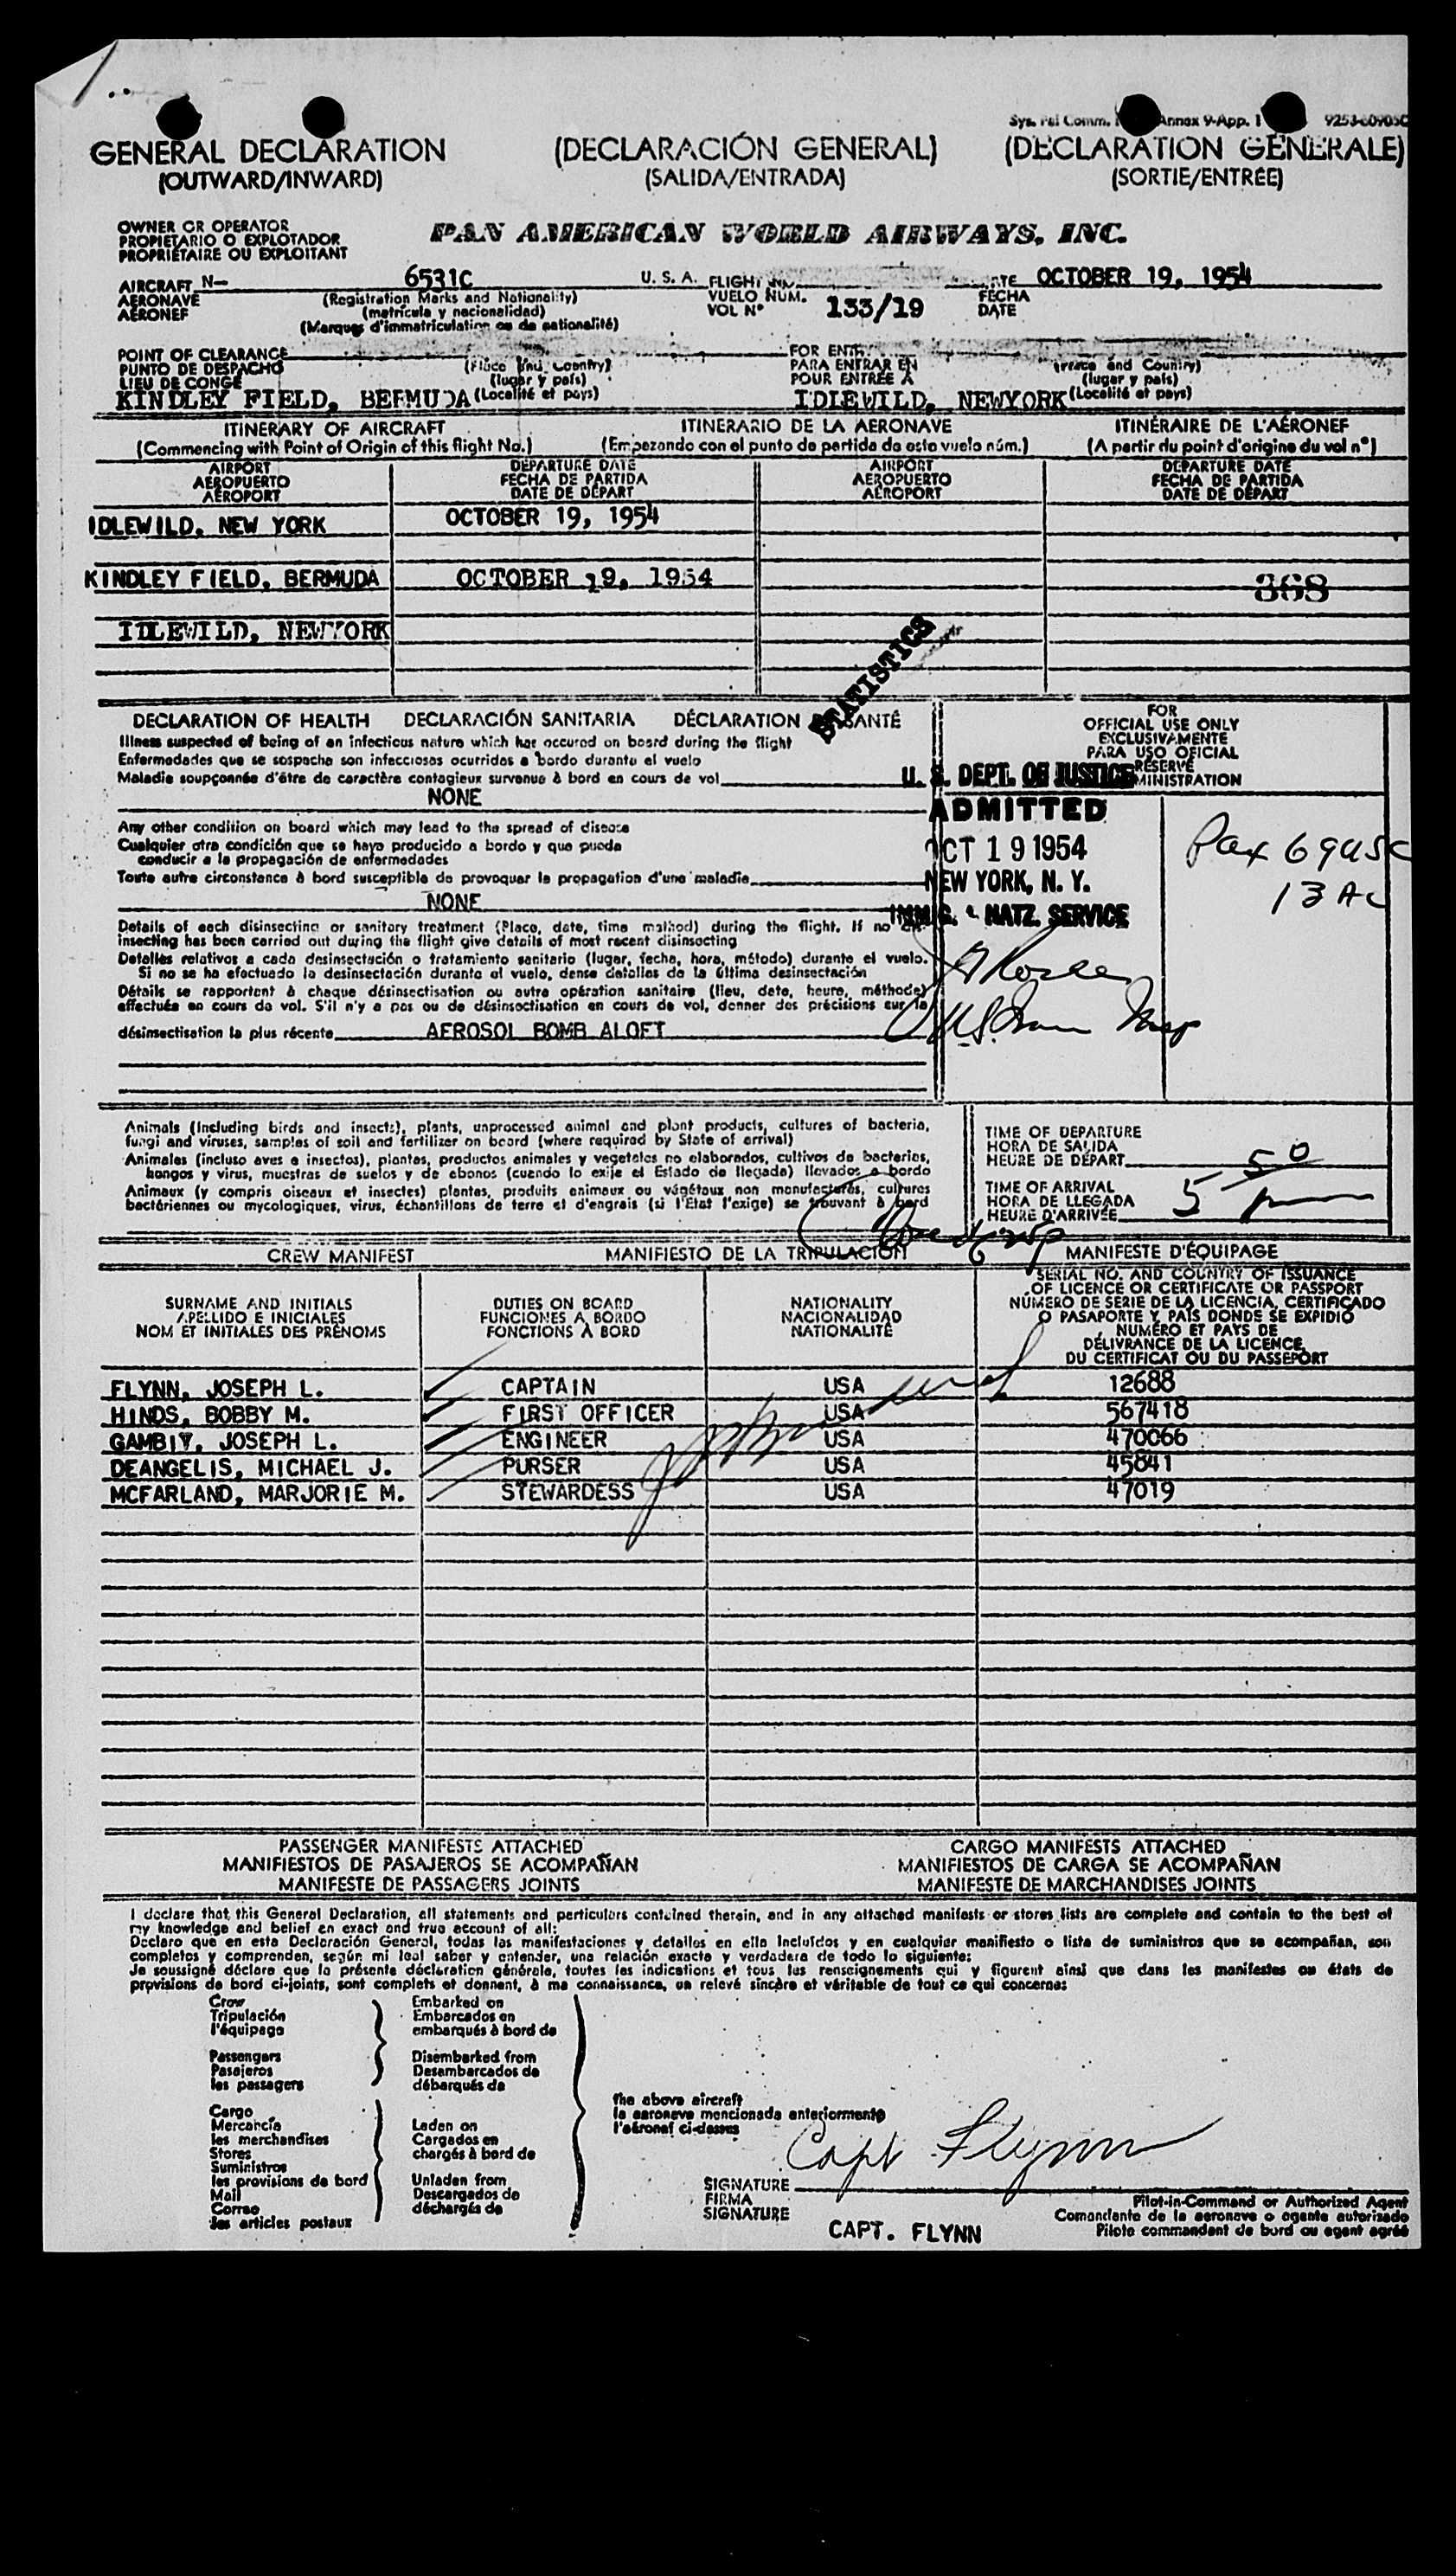 Annex 9-App. 1
GENERAL DECLARATION (DECLARACIÓN GENERAL) (DÉCLARATION GÉNÉRALE)
(OUTWARD/INWARD) (SALIDA/ENTRADA) (SORTIE/ENTRÉE)
OWNER OR OPERATOR
PROPIETARIO O EXPLOTADOR PAN AMERICAN WORLD AIRWAYS, INC.
PROPRIÉTAIRE OU EXPLOITANT
AIRCRAFT N— 6531C U. S. A. FLIGHT OCTOBER 19, 1954
AERONAVE (Registration Marks and Nationality) VUELO NÚM. 133/19 FECHA
AÉRONEF (matrícula y nacionalidad) VOL N° DATE
(Marques d'immatriculation ou de nationalité)
POINT OF CLEARANCE (Place and Country) FOR
PUNTO DE DESPACHO (lugar y país) PARA ENTRAR EN and Country)
LIEU DE CONGÉ POUR ENTRÉE À (lugar y país)
KINDLEY FIELD, BERMUDA (Localité et pays) IDLEWILD, NEWYORK (Localité et pays)
ITINERARY OF AIRCRAFT ITINERARIO DE LA AERONAVE ITINÉRAIRE DE L'AÉRONEF
(Commencing with Point of Origin of this flight No.) (Empezando con el punto de partida de este vuelo núm.) (A partir du point d'origine du vol n°)
AIRPORT DEPARTURE DATE AIRPORT DEPARTURE DATE
AEROPUERTO FECHA DE PARTIDA AEROPUERTO FECHA DE PARTIDA
AÉROPORT DATE DE DÉPART AÉROPORT DATE DE DÉPART
IDLEWILD, NEW YORK OCTOBER 19, 1954
KINDLEY FIELD, BERMUDA OCTOBER 19, 1954 368
IDLEWILD, NEWYORK
STATISTICS
DECLARATION OF HEALTH DECLARACIÓN SANITARIA DÉCLARATION SANTÉ
Illness suspected of being of an infectious nature which has occured on board during the flight
Enfermedades que se sospecha son infecciosas ocurridas a bordo durante el vuelo
Maladie soupçonnée d'être de caractère contagieux survenue à bord en cours de vol
NONE
Any other condition on board which may lead to the spread of disease
Cualquier otra condición que se haya producido a bordo y que pueda
conducir a la propagación de enfermedades
Toute autre circonstance à bord susceptible de provoquer la propagation d'une maladie
NONE
Details of each disinsecting or sanitary treatment (Place, date, time method) during the flight. If no
insecting has been carried out during the flight give details of most recent disinsecting
Detalles relativos a cada desinsectación o tratamiento sanitario (lugar, fecha, hora, método) durante el vuelo.
Si no se ha efectuado la desinsectación durante el vuelo, dense detalles de la última desinsectación
Détails se rapportant à chaque désinsectisation ou autre opération sanitaire (lieu, date, heure, méthode)
effectués en cours de vol. S'il n'y a pas eu de désinsectisation en cours de vol, donner des précisions sur la
désinsectisation la plus récente AEROSOL BOMB ALOFT
FOR
OFFICIAL USE ONLY
EXCLUSIVAMENTE
PARA USO OFICIAL
RÉSERVÉ
MINISTRATION
U. S. DEPT. OF JUSTICE
ADMITTED
OCT 19 1954
NEW YORK, N. Y.
IMMIG. & NATZ. SERVICE
Pax 69 USC
13 AC
Animals (Including birds and insects), plants, unprocessed animal and plant products, cultures of bacteria,
fungi and viruses, samples of soil and fertilizer on board (where required by State of arrival)
Animales (incluso aves e insectos), plantas, productos animales y vegetales no elaborados, cultivos de bacterias,
hongos y virus, muestras de suelos y de abonos (cuando lo exija el Estado de llegada) llevados a bordo
Animaux (y compris oiseaux et insectes) plantes, produits animaux ou végétaux non manufacturés, cultures
bactériennes ou mycologiques, virus, échantillons de terre et d'engrais (si l'État l'exige) se trouvant à bord
TIME OF DEPARTURE
HORA DE SALIDA
HEURE DE DÉPART
TIME OF ARRIVAL
HORA DE LLEGADA
HEURE D'ARRIVÉE
5 50 pm
CREW MANIFEST MANIFIESTO DE LA TRIPULACIÓN MANIFESTE D'ÉQUIPAGE
SURNAME AND INITIALS
APELLIDO E INICIALES
NOM ET INITIALES DES PRÉNOMS
DUTIES ON BOARD
FUNCIONES A BORDO
FONCTIONS À BORD
NATIONALITY
NACIONALIDAD
NATIONALITÉ
SERIAL NO. AND COUNTRY OF ISSUANCE
OF LICENCE OR CERTIFICATE OR PASSPORT
NÚMERO DE SERIE DE LA LICENCIA, CERTIFICADO
O PASAPORTE Y PAÍS DONDE SE EXPIDIÓ
NUMÉRO ET PAYS DE
DÉLIVRANCE DE LA LICENCE,
DU CERTIFICAT OU DU PASSEPORT
FLYNN, JOSEPH L. CAPTAIN USA 12688
HINDS, BOBBY M. FIRST OFFICER USA 567418
GAMBIY, JOSEPH L. ENGINEER USA 470066
DEANGELIS, MICHAEL J. PURSER USA 45841
MCFARLAND, MARJORIE M. STEWARDESS USA 47019
PASSENGER MANIFESTS ATTACHED CARGO MANIFESTS ATTACHED
MANIFIESTOS DE PASAJEROS SE ACOMPAÑAN MANIFIESTOS DE CARGA SE ACOMPAÑAN
MANIFESTE DE PASSAGERS JOINTS MANIFESTE DE MARCHANDISES JOINTS
I declare that this General Declaration, all statements and particulars contained therein, and in any attached manifests or stores lists are complete and contain to the best of
my knowledge and belief an exact and true account of all:
Declaro que en esta Declaración General, todas las manifestaciones y detalles en ella incluídos y en cualquier manifiesto o lista de suministros que se acompañan, son
completos y comprenden, según mi leal saber y entender, una relación exacta y verdadera de todo lo siguiente:
Je soussigné déclare que la présente déclaration générale, toutes les indications et tous les renseignements qui y figurent ainsi que dans les manifestes ou états de
provisions de bord ci-joints, sont complets et donnent, à ma connaissance, un relevé sincère et véritable de tout ce qui concerne:
Crew Embarked on
Tripulación Embarcados en
l'équipage embarqués à bord de
Passengers Disembarked from
Pasajeros Desembarcados de
les passagers débarqués de
Cargo
Mercancía Laden on
les merchandises Cargados en
Stores chargés à bord de
Suministros
les provisions de bord Unladen from
Mail Descargados de
Correo déchargés de
les articles postaux
the above aircraft
la aeronave mencionada anteriormente
l'aéronef ci-dessus
Capt Flynn
SIGNATURE
FIRMA
SIGNATURE
CAPT. FLYNN
Pilot-in-Command or Authorized Agent
Comandante de la aeronave o agente autorizado
Pilote commandant de bord ou agent agréé